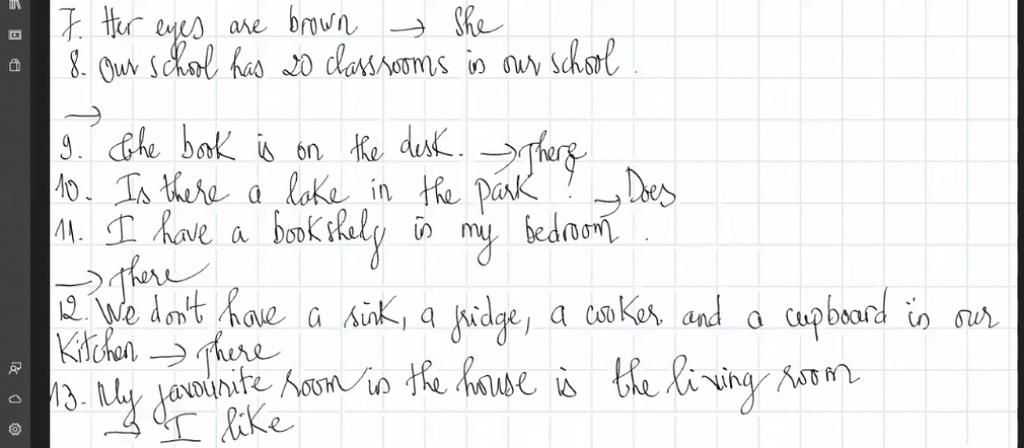 7. Her eyes are brown → She
8. Our school has 20 classrooms in our school.
→
9. The book is on the desk. → There
10. Is there a lake in the park? → Does
11. I have a bookshelf in my bedroom.
→ There
12. We don't have a sink, a fridge, a cooker and a cupboard in our
kitchen → There
13. My favourite room in the house is the living room
→ I like